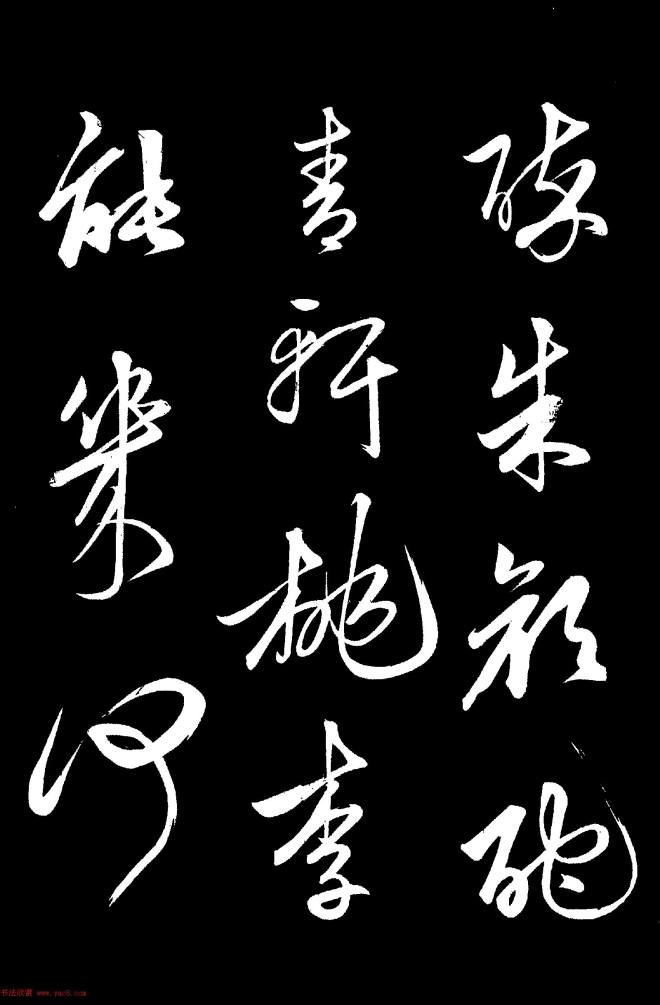 醉朱顏酡
青軒桃李
能幾何
书法欣赏 www.yac8.com